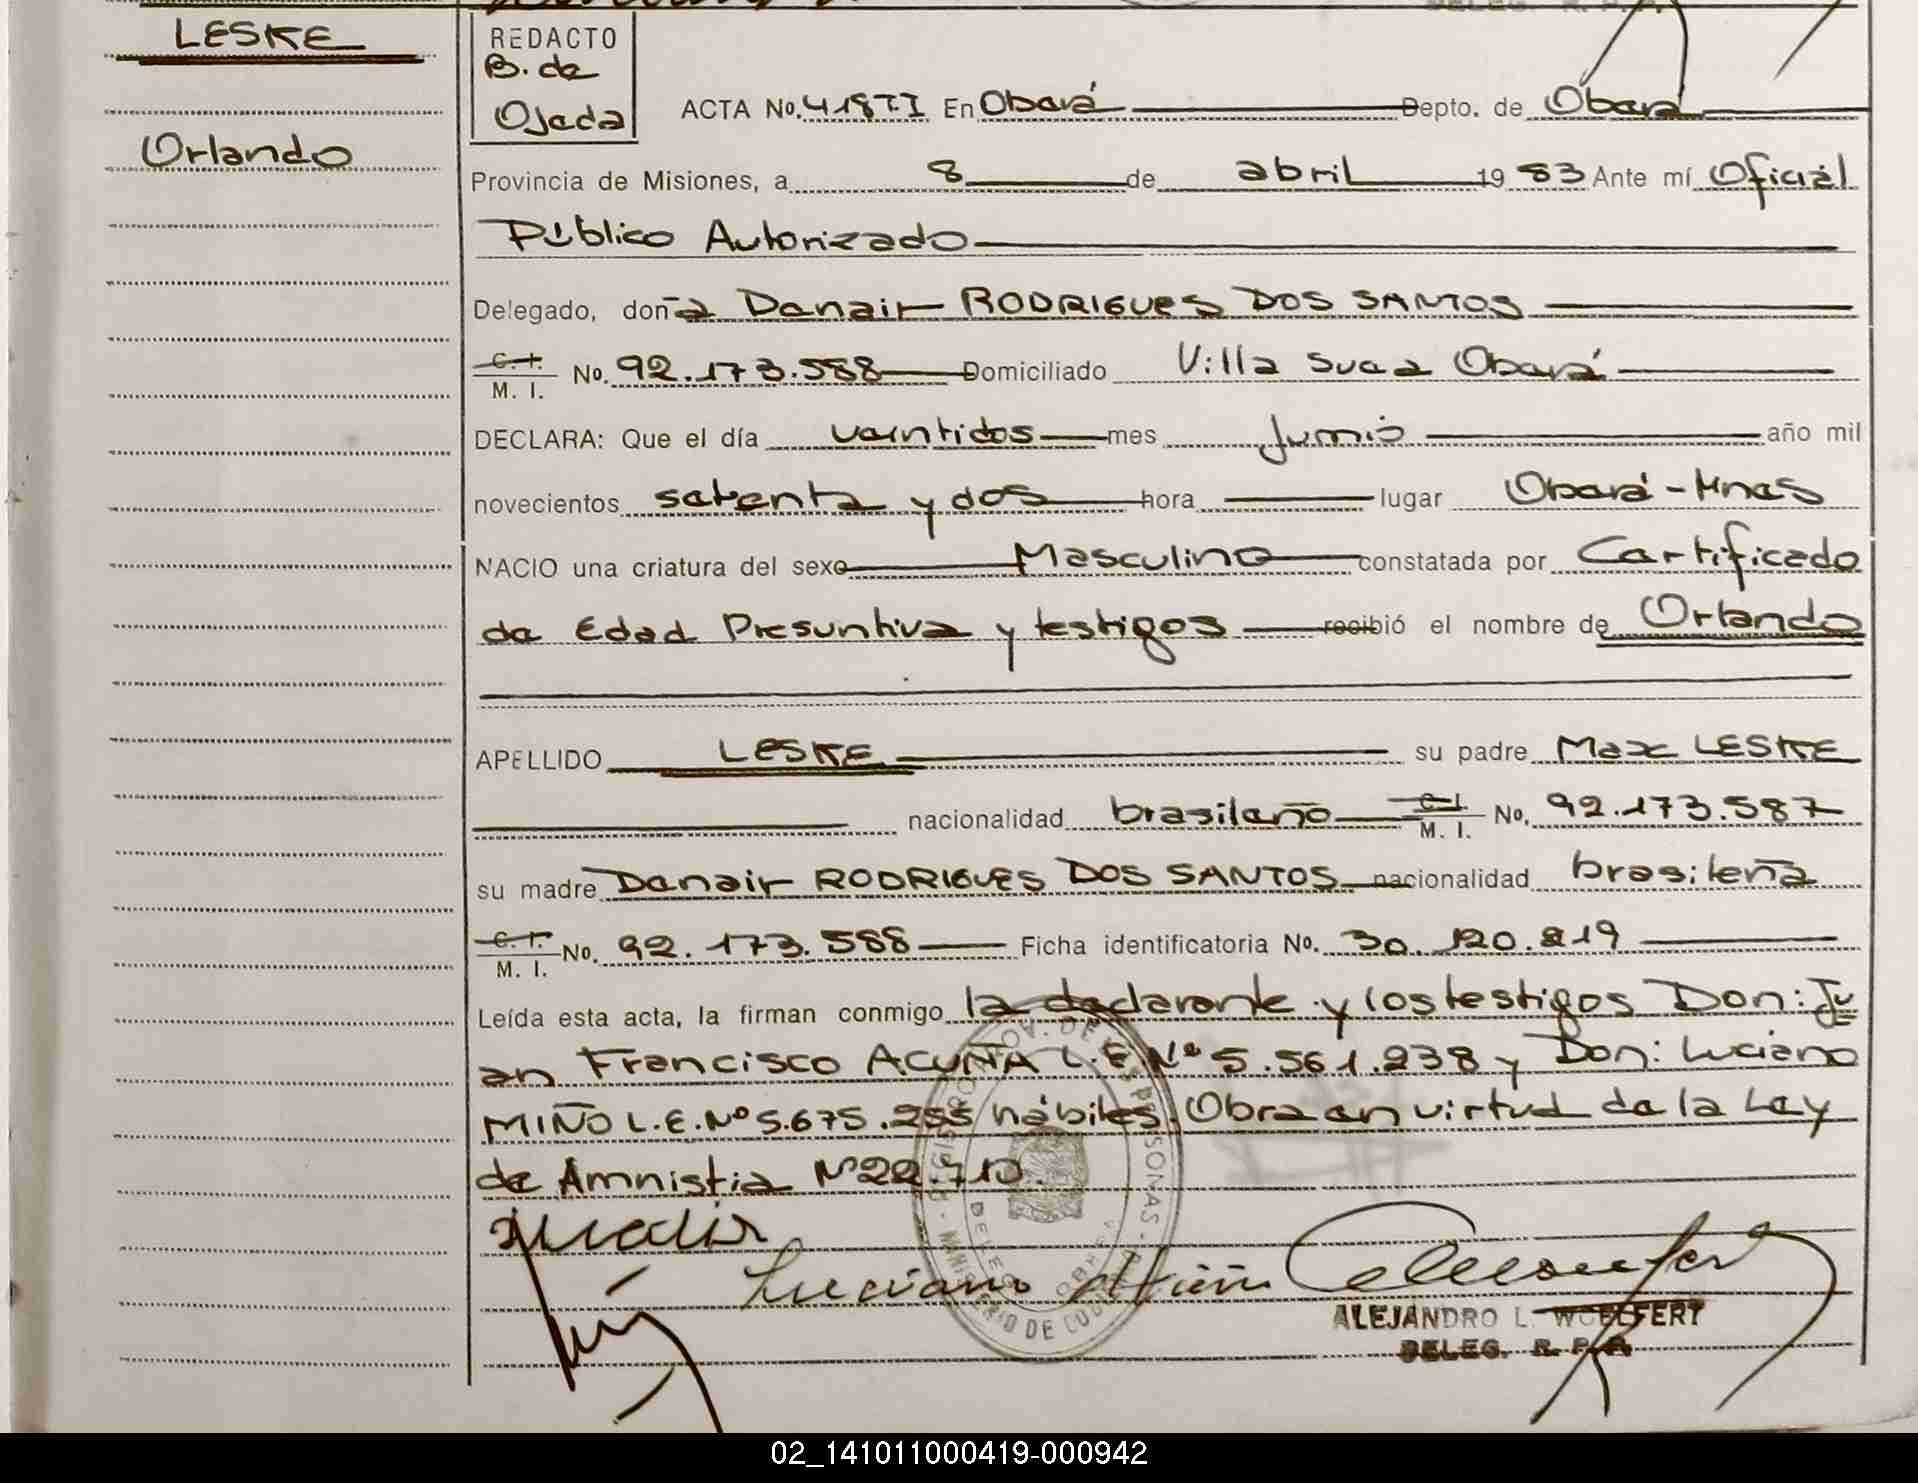 LESKE
Orlando
REDACTO
B. de
Ojeda
ACTA No. 418TI En Oberá Depto. de Oberá
Provincia de Misiones, a 8 de abril 19 83 Ante mí Oficial
Público Autorizado
Delegado, doña Danair RODRIGUES DOS SANTOS
C. I.
M. I. No. 92.173.588 Domiciliado Villa Sueca Oberá
DECLARA: Que el día veintidos mes Junio año mil
novecientos setenta y dos hora lugar Oberá-Mnes
NACIO una criatura del sexo Masculino constatada por Certificado
de Edad Presuntiva y testigos recibió el nombre de Orlando
APELLIDO LESKE su padre Max LESKE
nacionalidad brasileño C. I. M. I. No. 92.173.587
su madre Danair RODRIGUES DOS SANTOS nacionalidad brasileña
C. I. M. I. No. 92.173.588 Ficha identificatoria No. 30.120.819
Leída esta acta, la firman conmigo la declarante y los testigos Don: Ju
an Francisco ACUÑA L.E.Nº 5.561.238 y Don: Luciano
MIÑO L.E.Nº 5.675.255 hábiles. Obra en virtud de la Ley
de Amnistia Nº 22.710.
Luciano Miño
ALEJANDRO L. WOELFERT
DELEG. R. P. P.
02_141011000419-000942